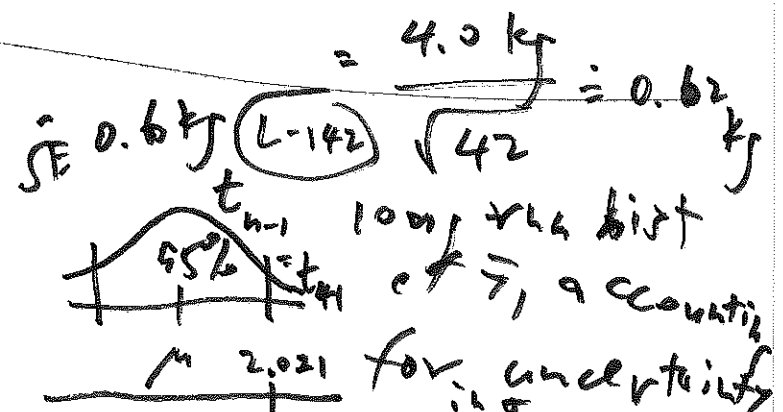 = 4.0 kg / √42 ≐ 0.62 kg
SE ≐ 0.6 kg L-142
t n-1 long run hist
95% = t 41 of ȳ, accounting
μ 2.021 for uncertainty
in